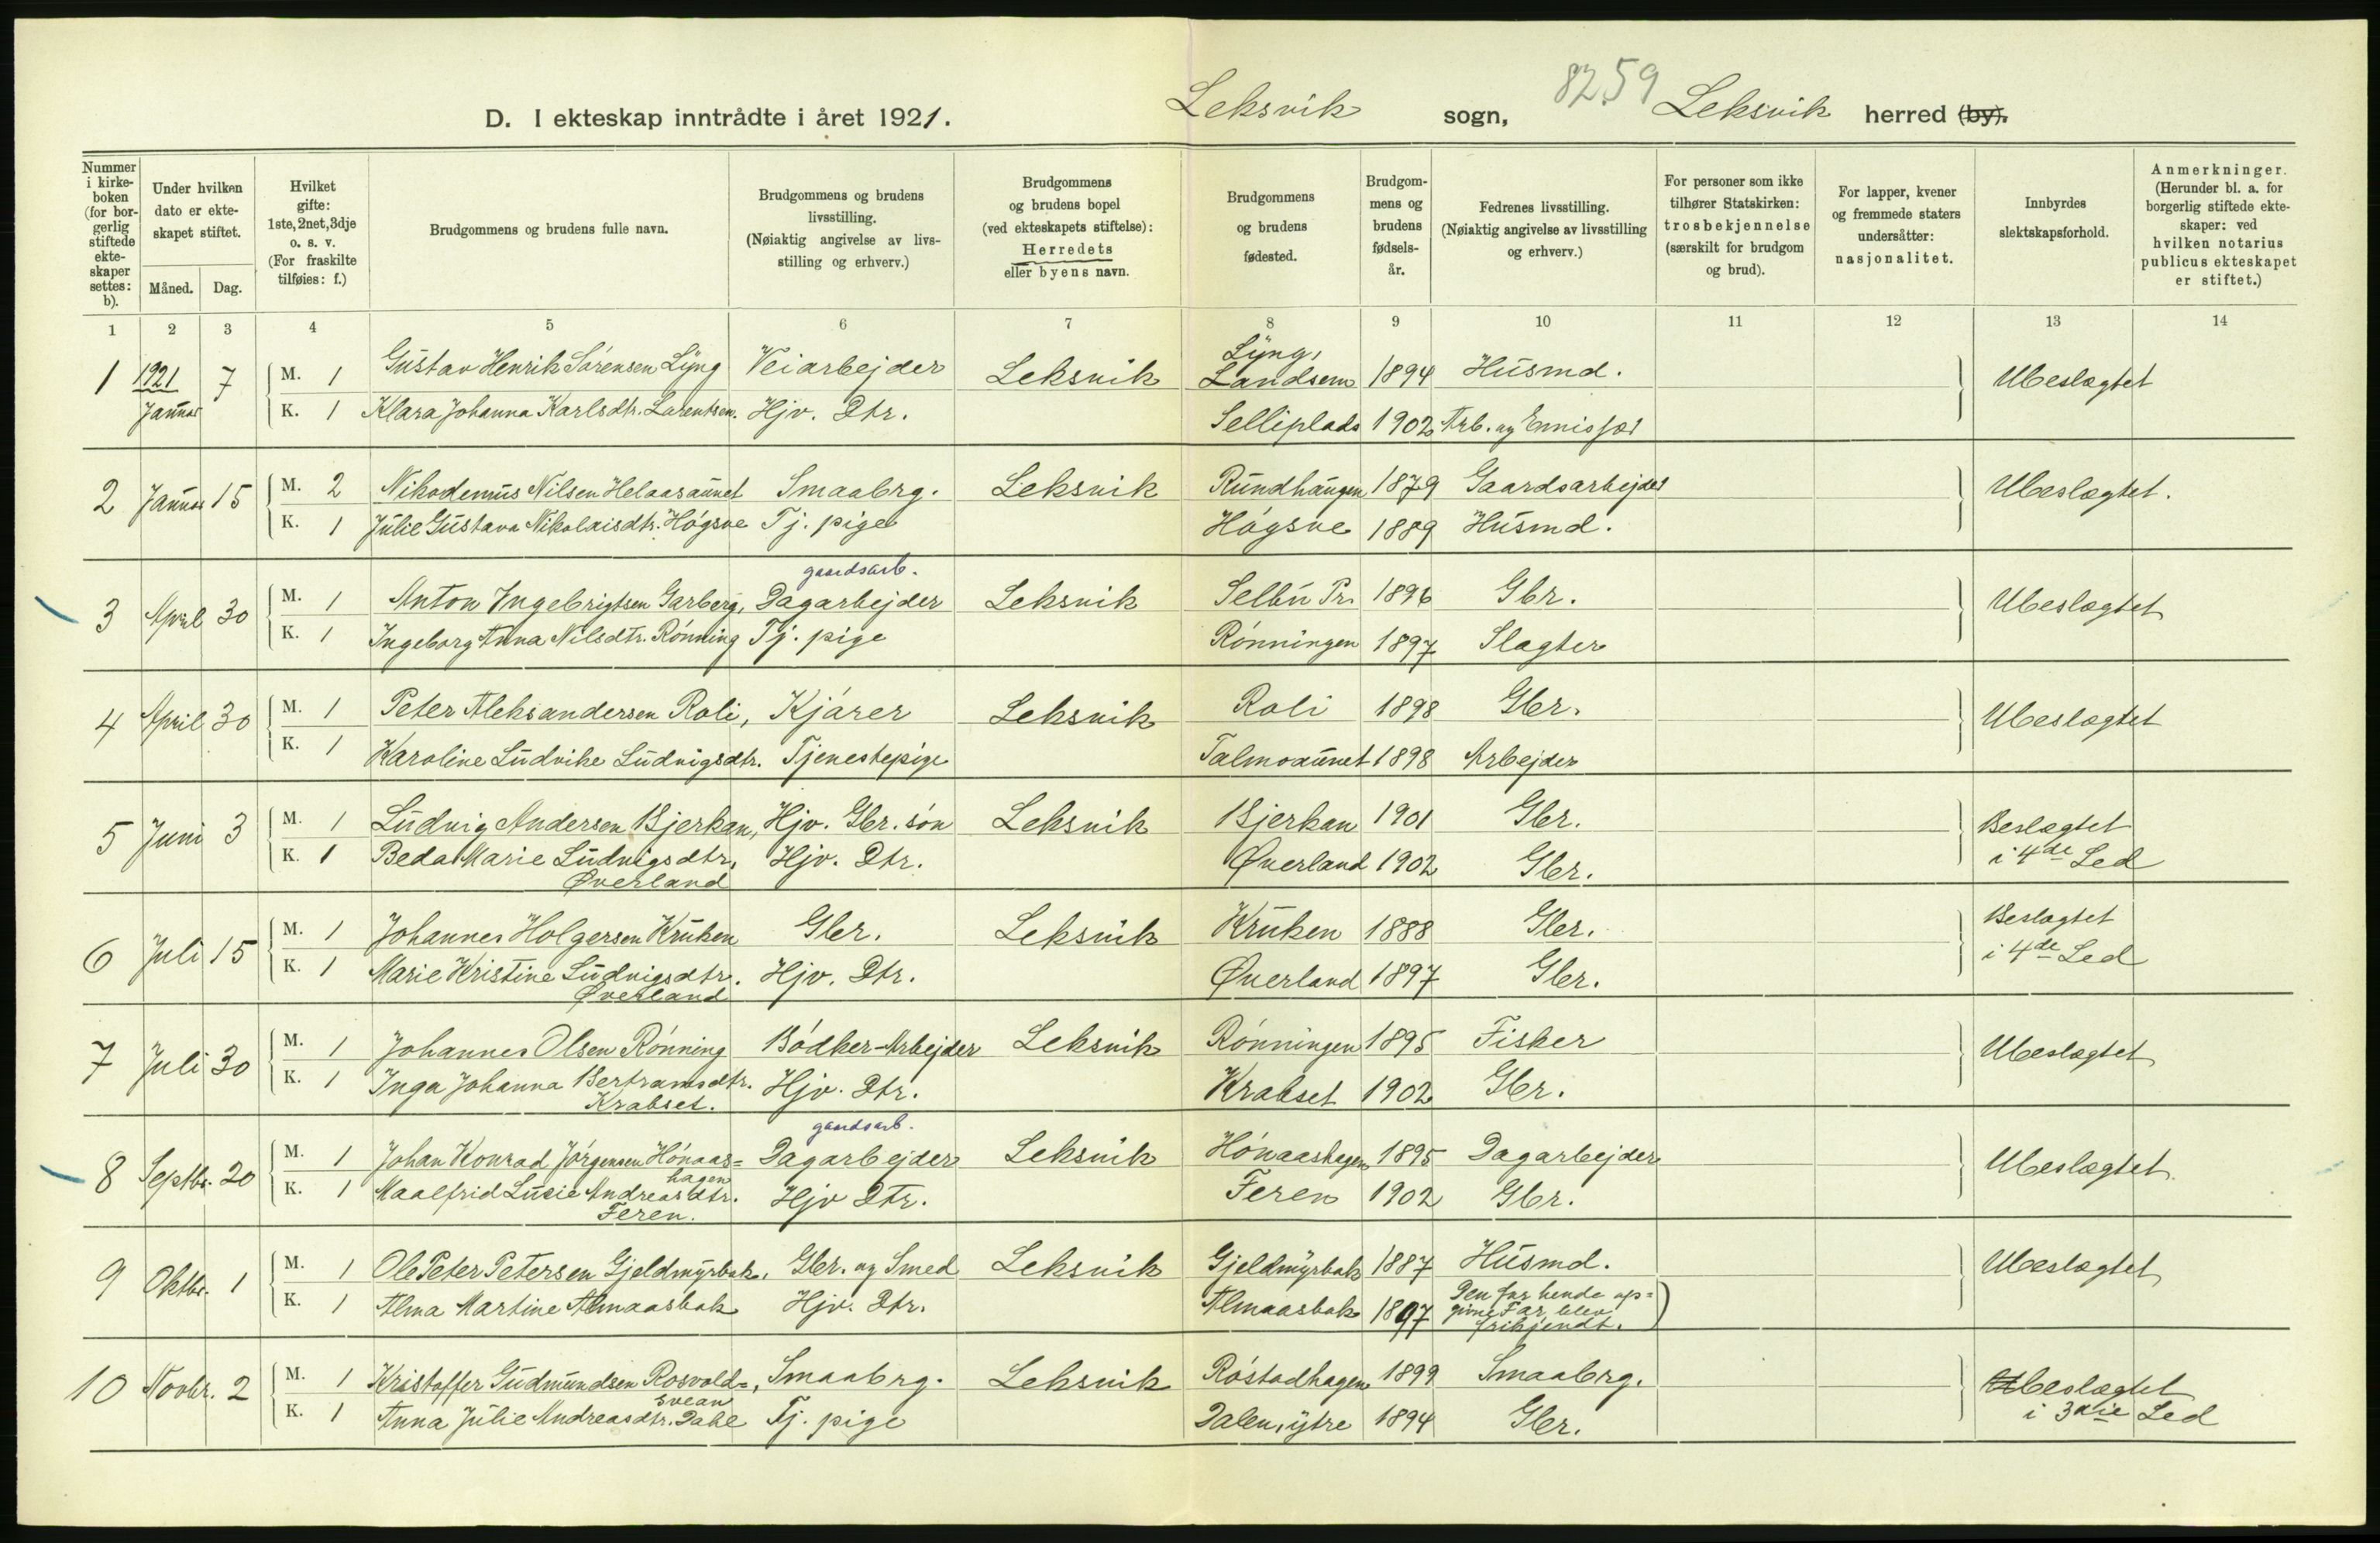 D. I ekteskap inntrådte i året 1921.
Leksvik sogn, 8259 Leksvik herred (by).
Nummer i kirke-boken (for bor-gerlig stiftede ekte-skaper settes: b).
Under hvilken dato er ekte-skapet stiftet.
Måned. Dag.
Hvilket gifte: 1ste, 2net, 3dje o. s. v. (For fraskilte tilføies: f.)
Brudgommens og brudens fulle navn.
Brudgommens og brudens livsstilling. (Nøiaktig angivelse av livs-stilling og erhverv.)
Brudgommens og brudens bopel (ved ekteskapets stiftelse): Herredets eller byens navn.
Brudgommens og brudens fødested.
Brudgom-mens og brudens fødsels-år.
Fedrenes livsstilling. (Nøiaktig angivelse av livsstilling og erhverv.)
For personer som ikke tilhører Statskirken: trosbekjennelse (særskilt for brudgom og brud).
For lapper, kvener og fremmede staters undersåtter: nasjonalitet.
Innbyrdes slektskapsforhold.
Anmerkninger. (Herunder bl. a. for borgerlig stiftede ekte-skaper: ved hvilken notarius publicus ekteskapet er stiftet.)
1 2 3 4 5 6 7 8 9 10 11 12 13 14
1 1921 Januar 7 M. 1 Gustav Henrik Sørensen Lyng Veiarbejder Leksvik Lyng, Landsem 1894 Husmd. Ubeslægtet
K. 1 Klara Johanna Karlsdtr. Larentsen. Hjv. Dtr. Selliplads 1902 Arb. og Emissær
2 Januar 15 M. 2 Nikodemus Nilsen Helaasaunet Smaabrg. Leksvik Rundhaugen 1879 Gaardsarbejder Ubeslægtet.
K. 1 Julie Gustava Nikolaisdtr. Høgsve Tj. pige Høgsve 1889 Husmd.
gaardsarb.
3 April 30 M. 1 Anton Ingebrigtsen Garberg, Dagarbejder Leksvik Selbu Pr. 1896 Gbr. Ubeslægtet
K. 1 Ingeborg Anna Nilsdtr. Rønning Tj. pige Rønningen 1897 Slagter
4 April 30 M. 1 Peter Aleksandersen Roli, Kjører Leksvik Roli 1898 Gbr. Ubeslægtet
K. 1 Karoline Ludvike Ludvigsdtr. Tjenestepige Talmoaunet 1898 Arbejder
5 Juni 3 M. 1 Ludvig Andersen Bjerkan, Hjv. Gbr. søn Leksvik Bjerkan 1901 Gbr. Beslægtet
K. 1 Beda Marie Ludvigsdtr. Øverland Hjv. Dtr. Øverland 1902 Gbr. i 4de Led
6 Juli 15 M. 1 Johannes Holgersen Kruken Gbr. Leksvik Kruken 1888 Gbr. Beslægtet
K. 1 Marie Kristine Ludvigsdtr. Øverland Hjv. Dtr. Øverland 1897 Gbr. i 4de Led
7 Juli 30 M. 1 Johannes Olsen Rønning Bødker-Arbejder Leksvik Rønningen 1895 Fisker Ubeslægtet
K. 1 Inga Johanna Bertramsdtr. Krabset. Hjv. Dtr. Krabset 1902 Gbr.
gaardsarb.
8 Septbr. 20 M. 1 Johan Konrad Jørgensen Hønaas=hagen Dagarbejder Leksvik Hønaashagen 1895 Dagarbejder Ubeslægtet.
K. 1 Maalfrid Lucie Andreasdtr. Feren. Hjv Dtr. Feren 1902 Gbr.
9 Oktbr. 1 M. 1 Ole Peter Petersen Gjeldmyrbak, Gbr. og Smed Leksvik Gjeldmyrbak 1887 Husmd. Ubeslægtet
K. 1 Alma Martine Almaasbak Hjv. Dtr. Almaasbak 1897 Den for hende op=givne Far blev frikjendt.
10 Novbr. 2 M. 1 Kristoffer Gudmundsen Rosvold=svean, Smaabrg. Leksvik Røstadhagen 1899 Smaabrg. Ubeslægtet
K. 1 Anna Julie Andreasdtr. Dahl Tj. pige Dalen, ytre 1894 Gbr. i 3die Led